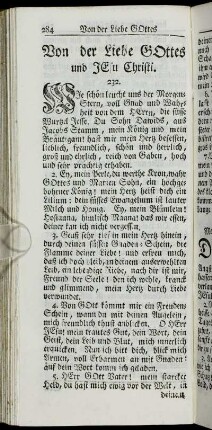 284 Von der Liebe GOttes
Von der Liebe GOttes
und JEsu Christi.
232.
WIe schön leucht uns der Morgen-
Stern, voll Gnad und Wahr-
heit von dem HErrn, die süsse
Wurzel Jesse. Du Sohn Davids, aus
Jacobs Stamm, mein König und mein
Bräutigam! hast mir mein Hertz besessen,
lieblich, freundlich, schön und herrlich,
groß und ehrlich, reich von Gaben, hoch
und sehr prächtig erhaben.
2. Ey, mein Perle, du werthe Kron, wahr
GOttes und Marien Sohn, ein hochge-
bohrner König! mein Hertz heißt dich ein
Lilium: dein süsses Evangelium ist lauter
Milch und Honig. Ey mein Blümlein!
Hosianna, himmlisch Manna! das wir essen,
deiner kan ich nicht vergessen.
3. Geuß sehr tief in mein Hertz hinein,
durch deinen süssen Gnaden-Schein, die
Flamme deiner Liebe! und erfreu mich,
daß ich doch bleib, an deinem auserwehlten
Leib, ein lebendige Riebe, nach dir ist mir,
Freund der Seele! ich
und glimmend, mein Hertz durch Liebe
verwundet.
4. Von GOtt kömmt mir ein Freuden-
Schein, wann du mit deinen Äugelein,
mich freundlich thust anblicken. O HErr
JEsu! mein trautes Gut, dein Wort, dein
Geist, dein Leib und Blut, mich innerlich
erquicken. Nim ich leit dich, blick mich
Armen, voll Erbarmen an mit Gnaden!
auf dein Wort komm ich geladen.
5. HErr GOtt Vater! mein starcker
Held, du hast mich ewig vor der Welt, in
deine